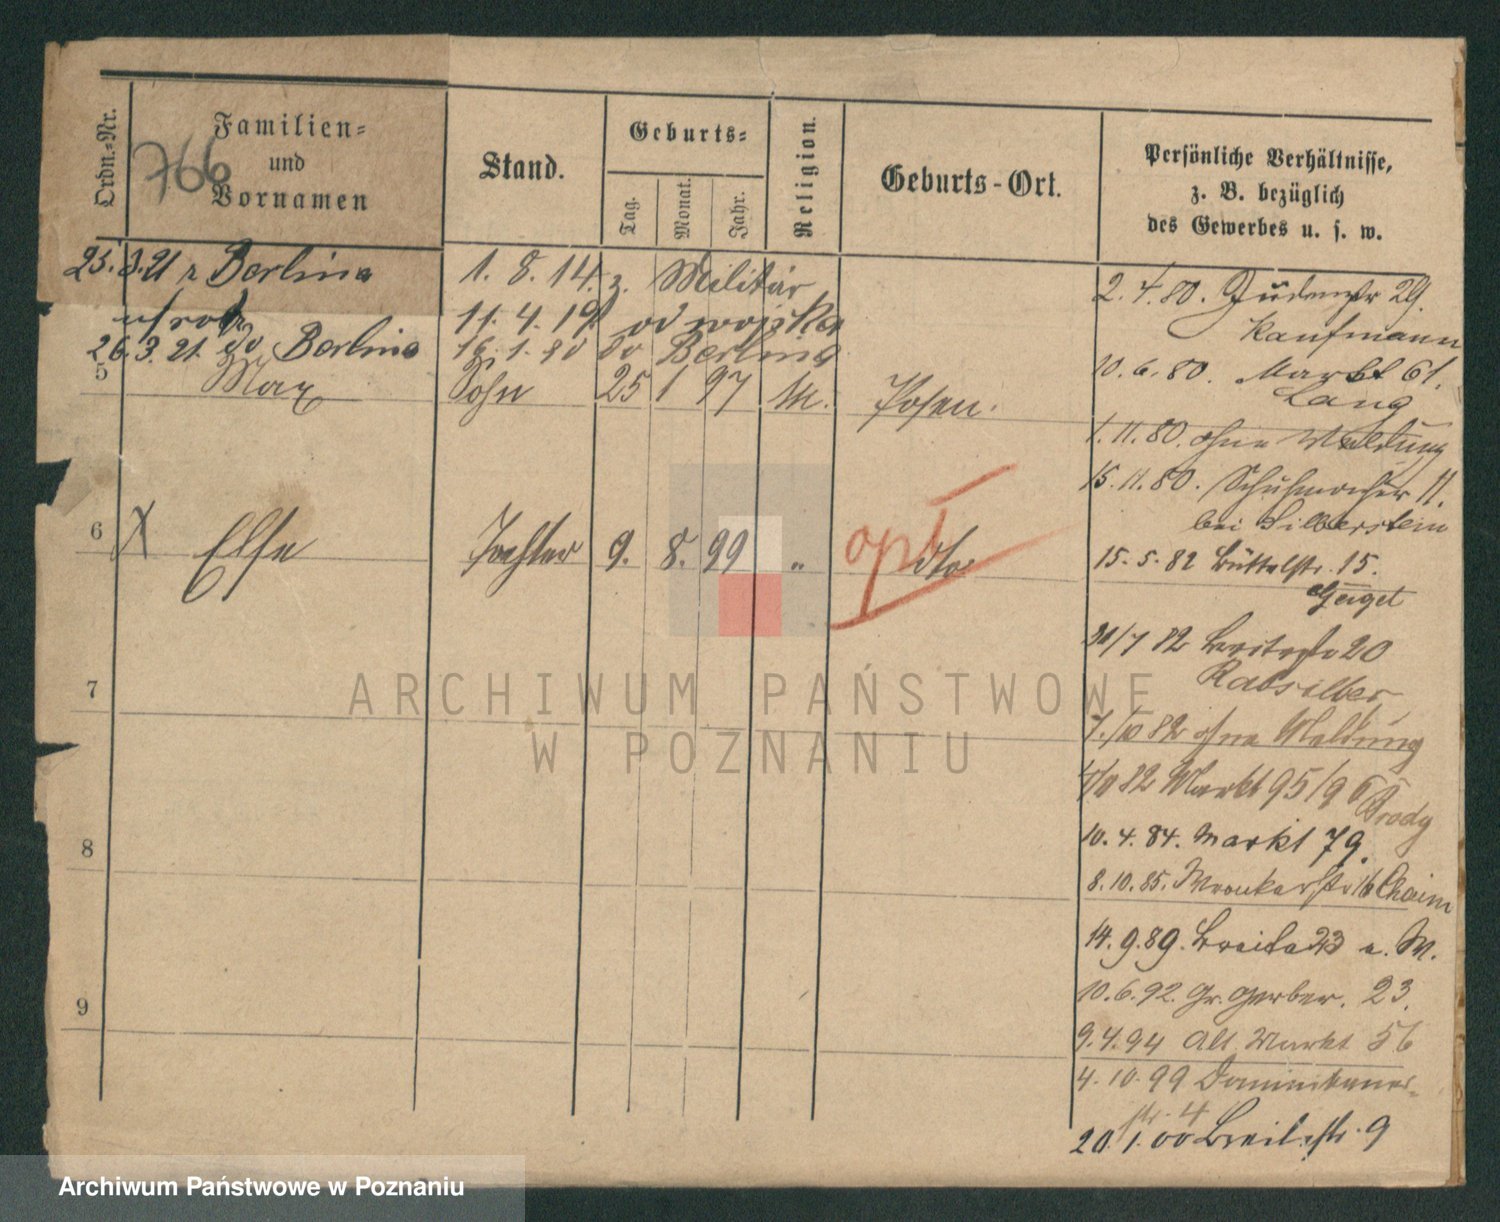 Ordn.-Nr.
Familien-
und
Vornamen
766
Stand.
Geburts-
Tag.
Monat.
Jahr.
Religion.
Geburts-Ort.
Persönliche Verhältnisse,
z. B. bezüglich
des Gewerbes u. s. w.
23. 3. 21 z Berlina
wrócił
26. 3. 21. do Berlina
1. 8. 14. z. Militär
11. 4. 19 od wojska
16. 1. 20 do Berlina
5 Max Sohn 25 1 97 M. Posen.
6 X Else Tochter 9. 8. 99 " dto
opt
7
8
9
2. 4. 80. Judenstr 29.
Kaufmann
10. 6. 80. Markt 61.
Lang
1. 11. 80. ohne Meldung
15. 11. 80. Schuhmacher 11.
bei Silberstein
15. 5. 82 Büttelstr. 15.
Geiget
/7 82 Breitestr 20
Rabsilber
7./10 82 ohne Meldung
82 Markt 95/96 Brody
10. 4. 84. Markt 79.
8. 10. 85. Wronkerstr 16 Chaim
14. 9. 89. Breite 23 a. W.
10. 6. 92. Gr. Gerber. 23.
9. 4. 94 Alt. Markt 56
4. 10. 99 Dominikaner-
str. 4
20. 1. 00 Breitestr. 9
ARCHIWUM PAŃSTWOWE
W POZNANIU
Archiwum Państwowe w Poznaniu